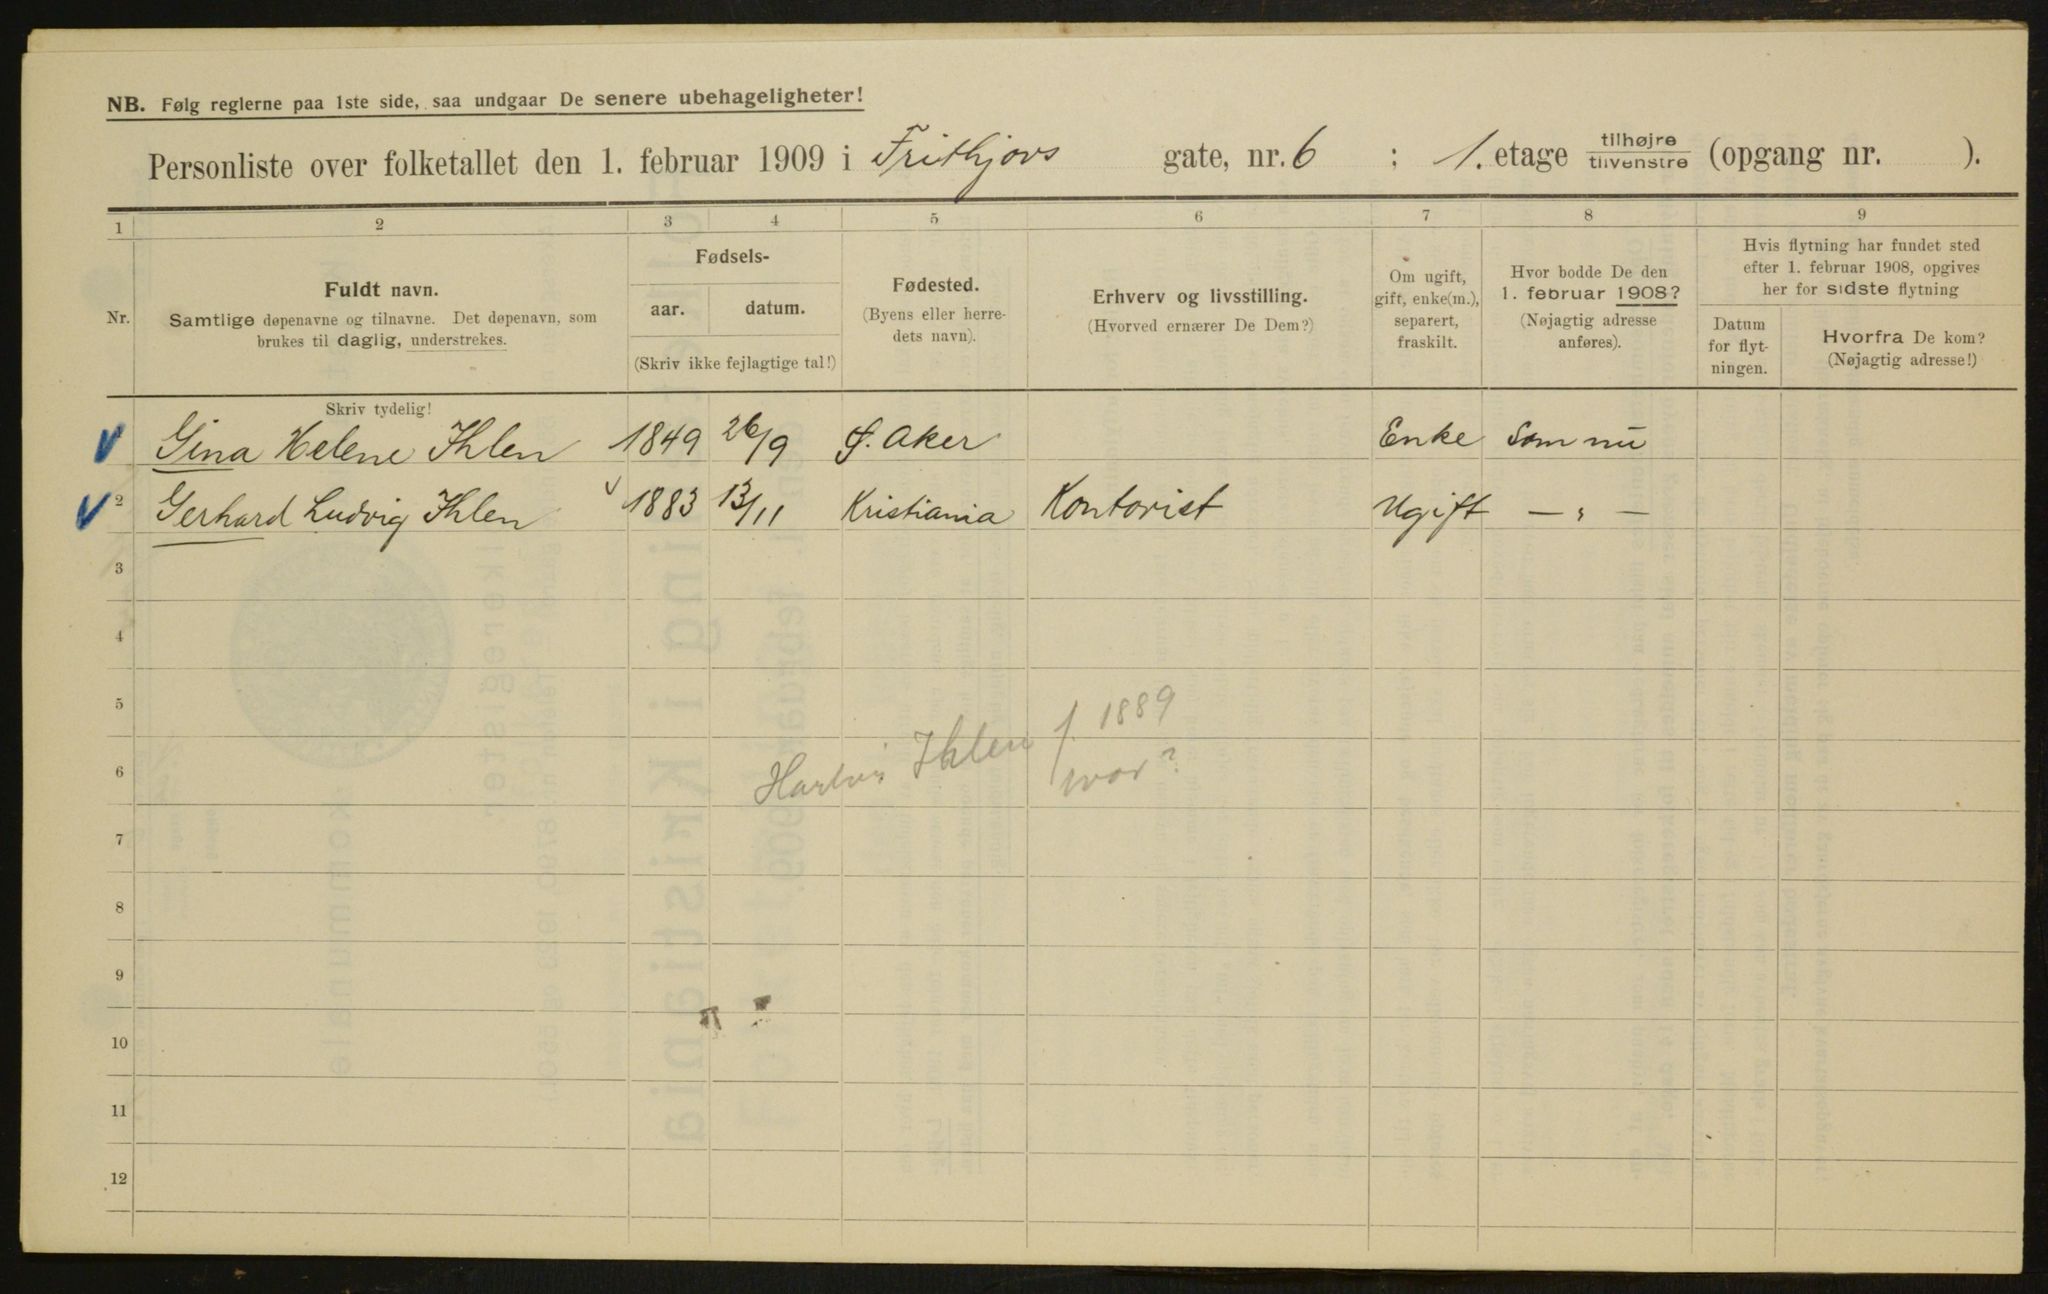 NB. Følg reglerne paa 1ste side, saa undgaar De senere ubehageligheter!
Personliste over folketallet den 1. februar 1909 i Frithjovs gate, nr. 6 ; 1. etage tilhøjre tilvenstre (opgang nr. ).
1 2 3 4 5 6 7 8 9
Nr.
Fuldt navn.
Samtlige døpenavne og tilnavne. Det døpenavn, som
brukes til daglig, understrekes.
Fødsels-
aar. datum.
(Skriv ikke fejlagtige tal!)
Fødested.
(Byens eller herre-
dets navn).
Erhverv og livsstilling.
(Hvorved ernærer De Dem?)
Om ugift,
gift, enke(m.),
separert,
fraskilt.
Hvor bodde De den
1. februar 1908?
(Nøjagtig adresse
anføres).
Hvis flytning har fundet sted
efter 1. februar 1908, opgives
her for sidste flytning
Datum
for flyt-
ningen.
Hvorfra De kom?
(Nøjagtig adresse!)
Skriv tydelig!
Gina Helene Ihlen 1849 26/9 Aker Enke Som nu
2 Gerhard Ludvig Ihlen 1883 13/11 Kristiania Kontorist Ugift — " —
3
4
5
Ihlen f. 1889
6
hvor?
7
8
9
10
11
12